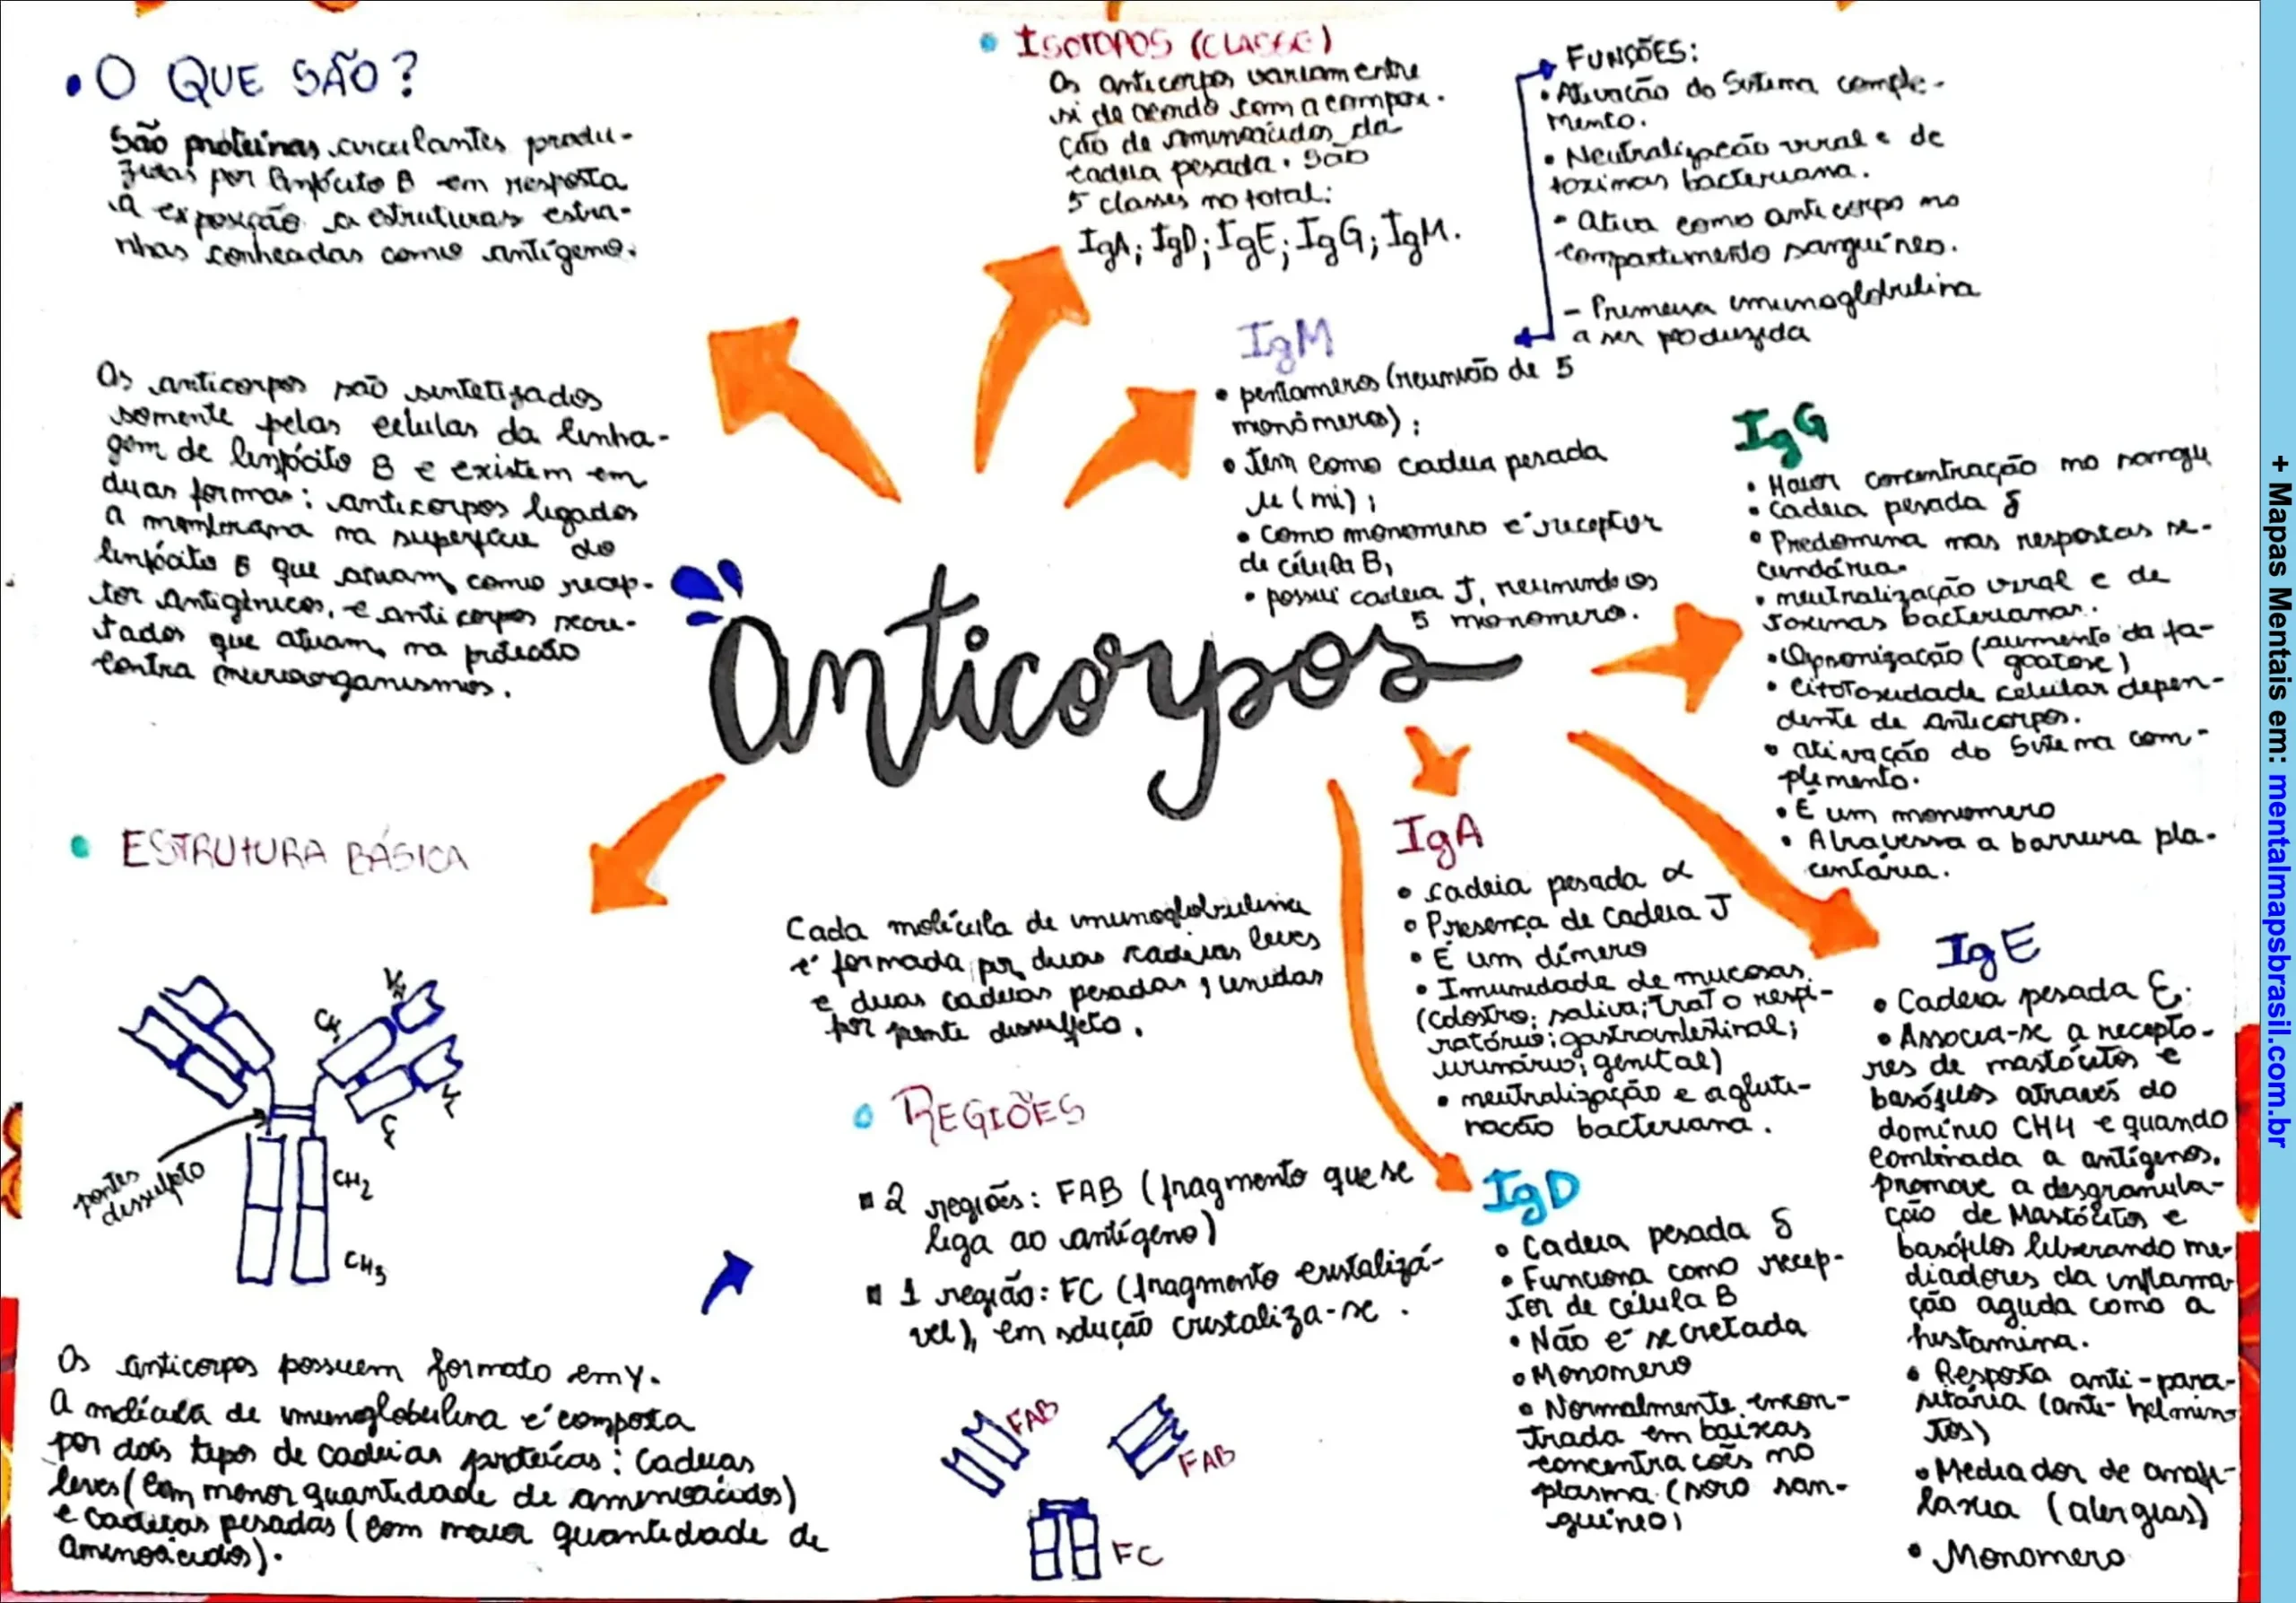 • O QUE SÃO?
São proteínas circulantes produ-
zidas por linfócito B em resposta
à exposição a estruturas estra-
nhas conhecidas como antígeno.
Os anticorpos são sintetizados
somente pelas células da linha-
gem de linfócito B e existem em
duas formas: anticorpos ligados
a membrana na superfície do
linfócito B que atuam como recep-
tor antigênicos, e anticorpos secre-
tados que atuam na proteção
contra microorganismos.
• ISOTOPOS (CLASSE)
Os anticorpos variam entre
si de acordo com a compos.
ção de aminoácidos da
cadeia pesada. São
5 classes no total:
IgA; IgD; IgE; IgG; IgM.
FUNÇÕES:
• Ativação do Sistema comple-
mento.
• Neutralização viral e de
toxinas bacteriana.
• Ativa como anticorpo no
compartimento sanguíneo.
- Primeira imunoglobulina
a ser produzida
IgM
• pentameros (reunião de 5
monômeros);
• Tem como cadeia pesada
µ (mi);
• como monomero é receptor
de célula B,
• possui cadeia J, reunindo os
5 monomero.
Anticorpos
IgG
• Maior concentração no sangu
• Cadeia pesada δ
• Predomina nas respostas se-
cundária.
• neutralização viral e de
toxinas bacterianas.
• Opsonização (aumento da fa-
gocitose)
• Citotoxidade celular depen-
dente de anticorpos.
• ativação do Sistema com-
plemento.
• É um monomero
• Atravessa a barreira pla-
centária.
IgA
• cadeia pesada α
• Presença de cadeia J
• É um dímero
• Imunidade de mucosas.
(colostro; saliva; trato respi-
ratório; gastrointestinal;
urinário; genital)
• neutralização e agluti-
nação bacteriana.
IgE
• Cadeia pesada ε.
• Associa-se a recepto-
res de mastócitos e
basófilos através do
domínio CH4 e quando
combinada a antígenos.
promove a desgranula-
ção de Mastócitos e
basófilos liberando me-
diadores da inflama-
ção aguda como a
histamina.
• Resposta anti-para-
sitária (anti-helmin-
tos)
• Mediador de anafi-
laxia (alergias)
• Monomero
IgD
• Cadeia pesada δ
• Funciona como recep-
tor de célula B
• Não é secretada
• Monomero
• Normalmente encon-
trada em baixas
concentracões no
plasma (soro san-
guíneo)
• ESTRUTURA BÁSICA
CH1
VH
VL
CL
pontes
dissulfeto
CH2
CH3
Os anticorpos possuem formato em Y.
A molécula de imunoglobulina é composta
por dois tipos de cadeias proteícas: Cadeias
leves (com menor quantidade de aminoácidos)
e cadeias pesadas (com maior quantidade de
aminoácidos).
Cada molécula de imunoglobulina
é formada por duas cadeias leves
e duas cadeias pesadas, unidas
por ponte dissulfeto.
• REGIÕES
2 regiões: FAB (fragmento que se
liga ao antígeno)
1 região: FC (fragmento cristalizá-
vel), em solução cristaliza-se.
FAB
FAB
FC
+ Mapas Mentais em: mentalmapsbrasil.com.br